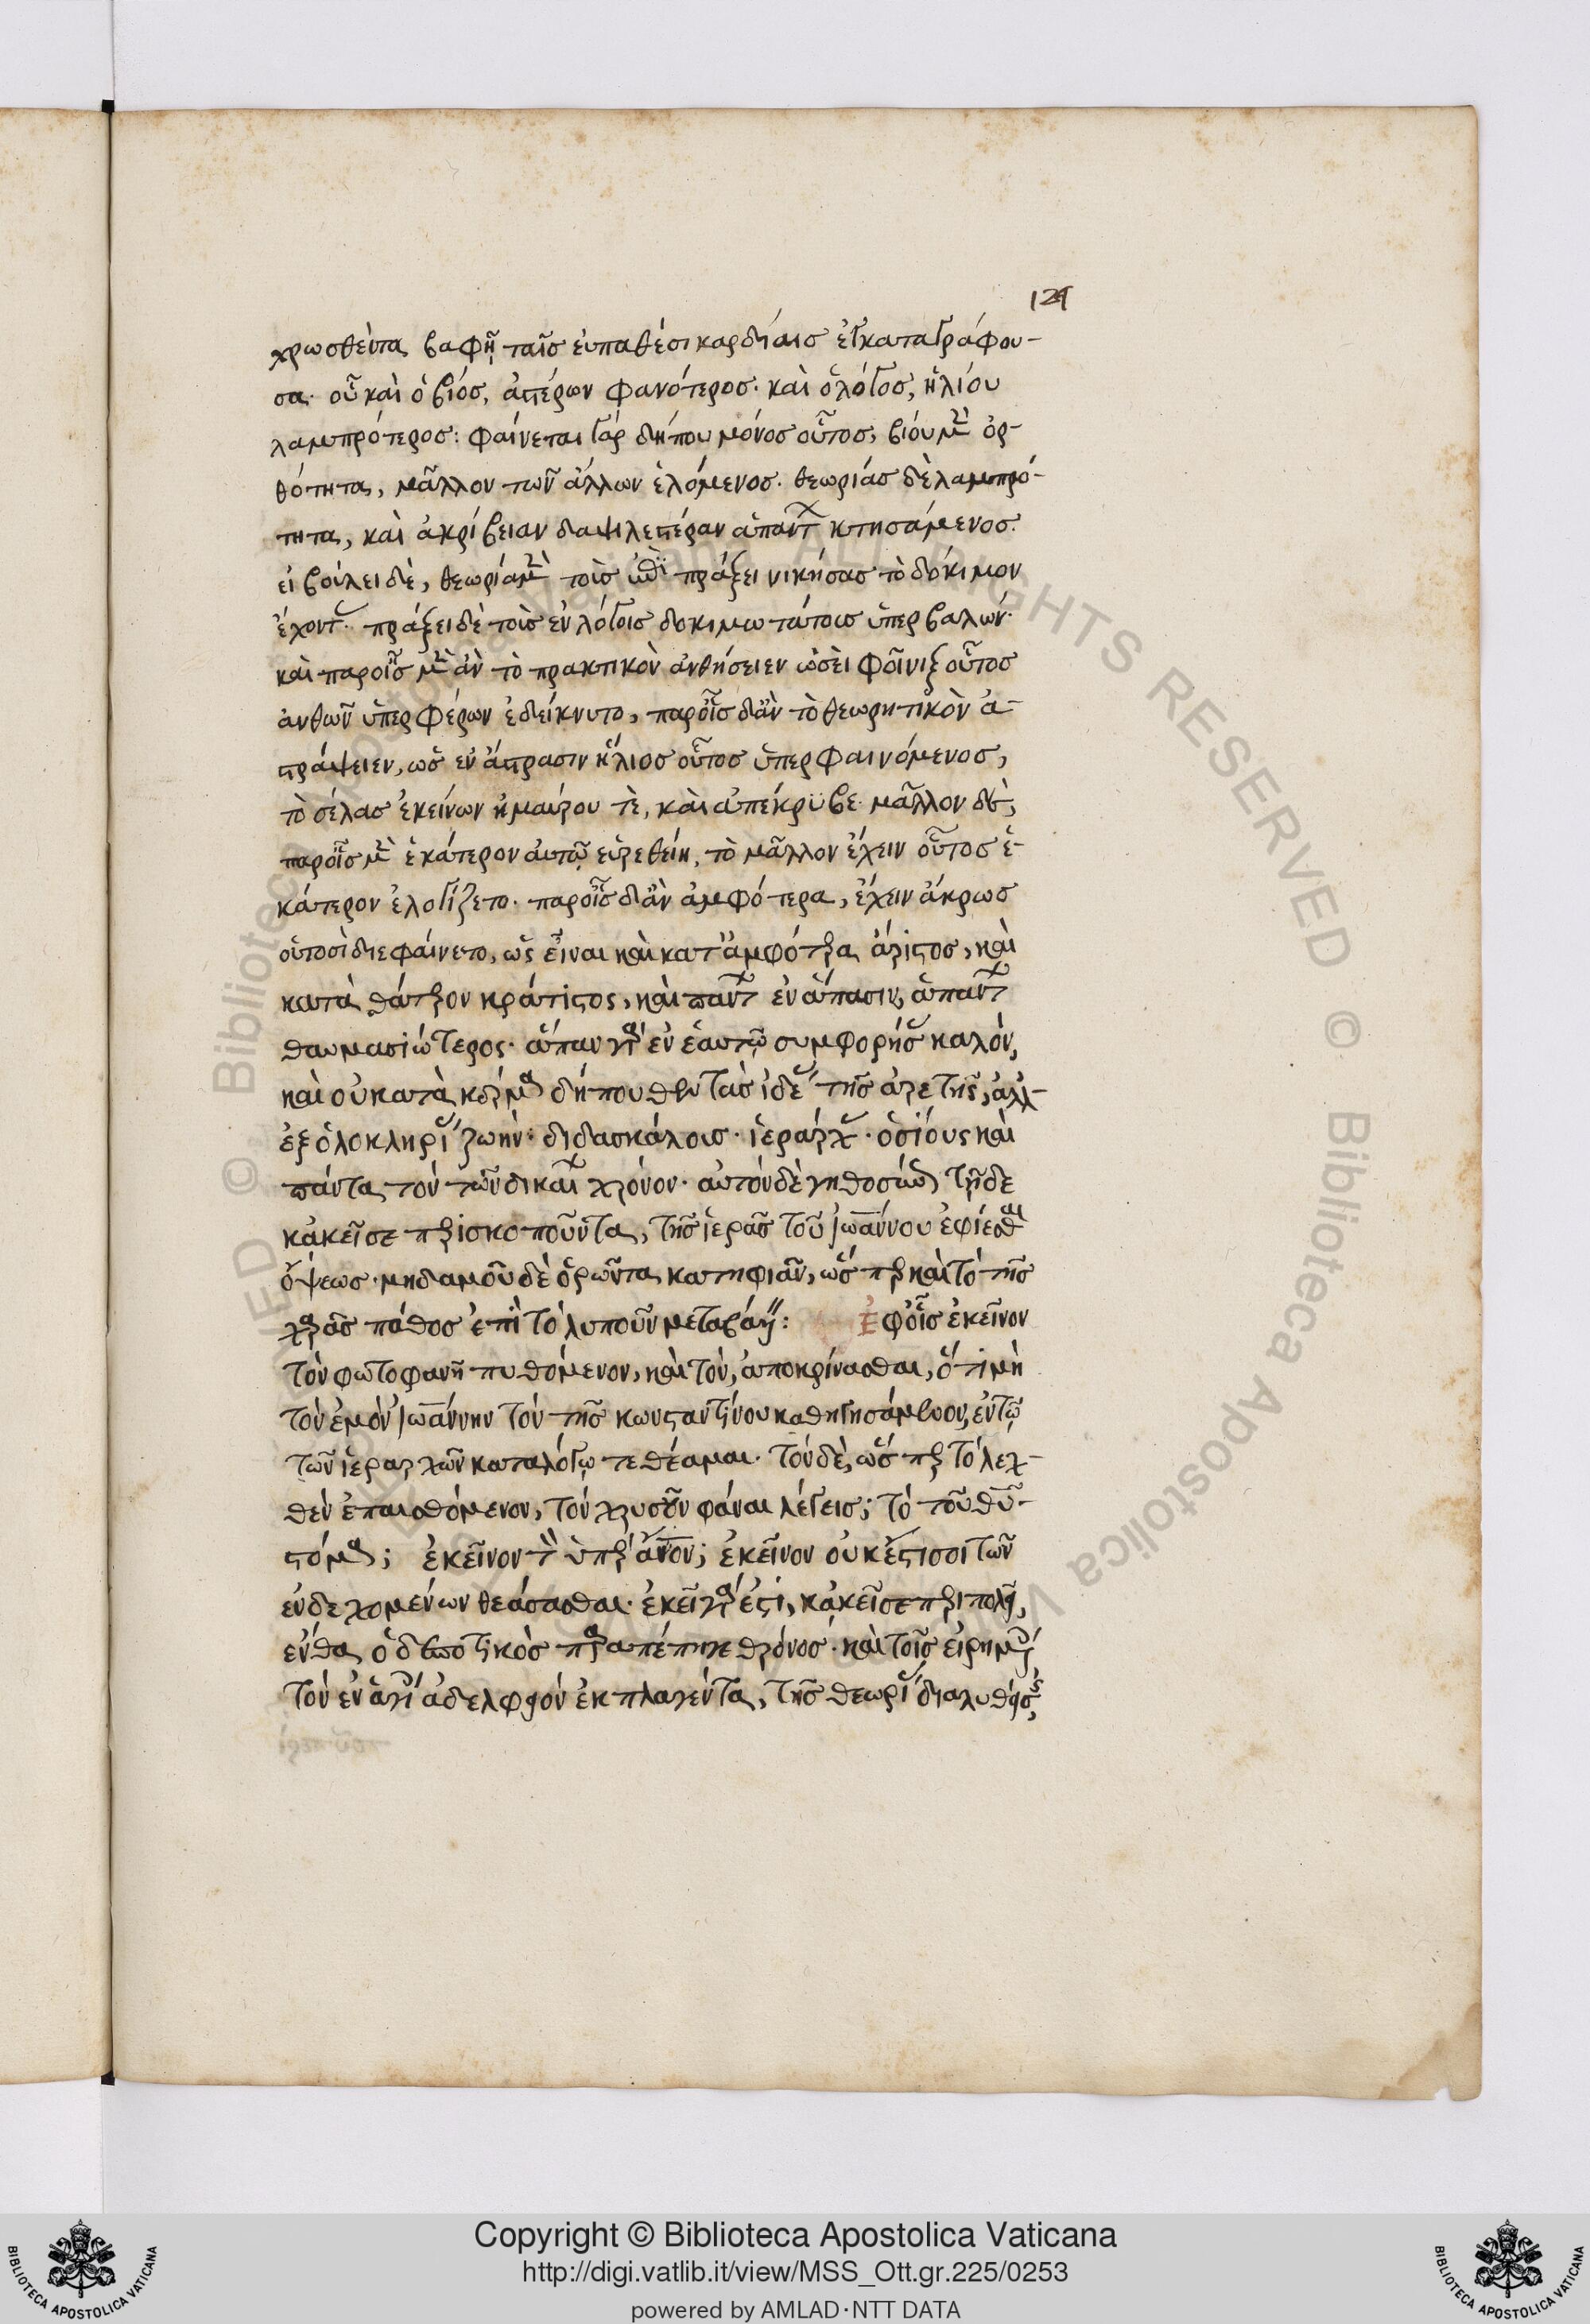 121
χρωσθέντα βαφῇ ταῖς εὐπαθέσι καρδίαις ἐγκαταγράφου-
σα· οὗ καὶ ὁ βίος, ἀστέρων φανότερος· καὶ ὁ λόγος, ἡλίου
λαμπρότερος: φαίνεται γάρ δήπου μόνος οὗτος, βίου μὲν ὀρ-
θότητα, μᾶλλον τῶν ἄλλων ἑλόμενος· θεωρίας δὲ λαμπρό-
τητα, καὶ ἀκρίβειαν δαψιλεστέραν ἁπάντων κτησάμενος.
εἰ βούλει δὲ, θεωρία μὲν τοὺς πράξει νικήσας τὸ δόκιμον
ἔχοντας· πράξει δὲ τοὺς ἐν λόγοις δοκιμωτάτους ὑπερβαλών·
καὶ παροῖς μὲν ἂν τὸ πρακτικὸν ἀνθήσειεν ὡσεὶ φοῖνιξ οὗτος
ἀνθῶν ὑπερφέρων ἐδείκνυτο, παροῖς δ' ἂν τὸ θεωρητικὸν ἀ-
στράψειεν, ὡς ἐν ἄστρασιν ἥλιος οὗτος ὑπερφαινόμενος,
τὸ σέλας ἐκείνων ἠμαύρου τὲ, καὶ ἀπέκρυβε· μᾶλλον δὲ,
παροῖς μὲν ἑκάτερον αὐτῷ εὑρεθείη, τὸ μᾶλλον ἔχειν οὗτος ἑ-
κάτερον ἐλογίζετο· παροῖς δ' ἂν ἀμφότερα, ἔχειν ἄκρως
οὑτοσὶ διεφαίνετο, ὡς εἶναι καὶ κατ' ἀμφότερα ἄριστος, καὶ
κατὰ θάτερον κράτιστος, καὶ πάντων ἐν ἅπασιν, ἁπάντων
θαυμασιώτερος· ἅπαν γὰρ ἐν ἑαυτῷ συμφορήσας καλόν,
καὶ οὐ κατὰ κόμμα δήπουθεν τὰς ἰδέας τῆς ἀρετῆς, ἀλλ'
ἐξ ὁλοκληρίας ζωήν· διδασκάλοις· ἱεράρχας· ὁσίους καὶ
πάντα τὸν τῶν δικαίων χρόνον· αὐτὸν δὲ γηθοσύνως τῇδε
κἀκεῖσε περισκοποῦντα, τῆς ἱερᾶς τοῦ Ἰωάννου ἐφίεσθαι
ὄψεως· μηδαμοῦ δὲ ὁρῶντα κατηφιᾶν, ὥσπερ καὶ τὸ τῆς
χαρᾶς πάθος ἐπὶ τὸ λυποῦν μεταβάλλειν: Ἐφ' οἷς ἐκεῖνον
τὸν φωτοφανῆ πυθόμενον, καὶ τὸν, ἀποκρίνασθαι, ὅτι μὴ
τὸν ἐμὸν Ἰωάννην τὸν τῆς κωνσταντίνου καθηγησάμενον, ἐν τῷ
τῶν ἱεραρχῶν καταλόγῳ τεθέαμαι· τὸν δὲ, ὥσπερ τὸ λεχ-
θὲν ἐπαισθόμενον, τὸν χρυσοῦν φάναι λέγεις; τὸ τοῦ θυ-
στόμα; ἐκεῖνον τὸν ὑπὲρ ἄνον; ἐκεῖνον οὐκ ἔστι σοι τῶν
ἐνδεχομένων θεάσασθαι· ἐκεῖ γάρ ἐστι, κἀκεῖσε περιπολεῖ,
ἔνθα ὁ δεσποτικὸς παραπέπηγε θρόνος· καὶ τοῖς εἰρημένοις
τὸν ἐν ἁγίοις ἀδελφὸν ἐκπλαγέντα, τῆς θεωρίας διαλυθείσης,